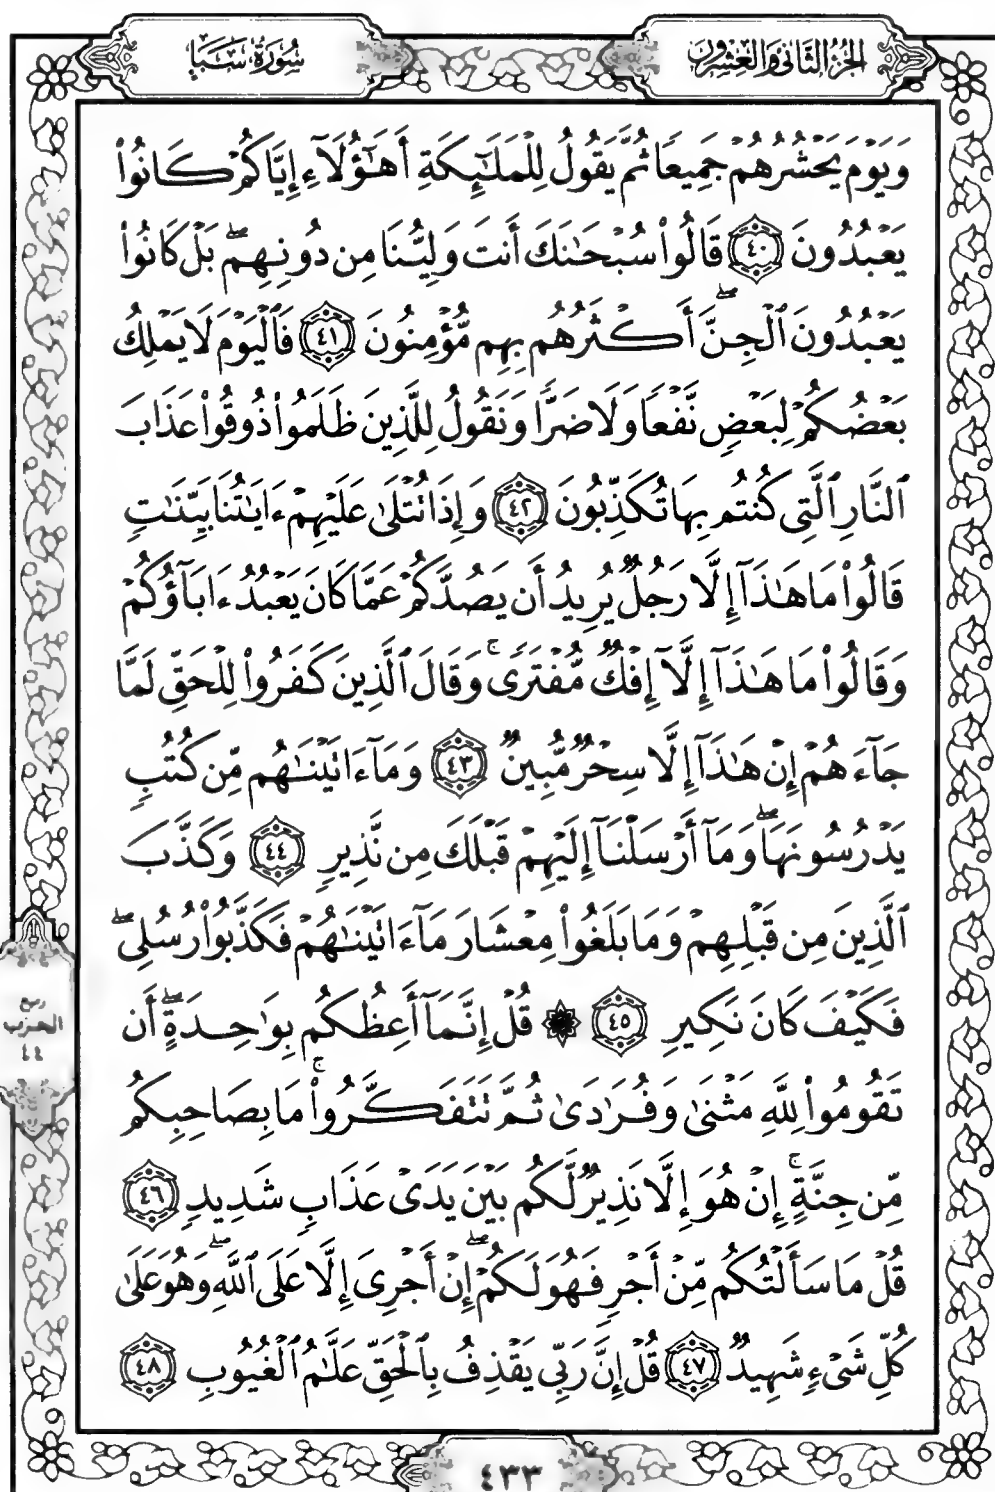 الجزء الثاني والعشرون
سورة سبإ
وَيَوْمَ يَحْشُرُهُمْ جَمِيعًا ثُمَّ يَقُولُ لِلْمَلَٰٓئِكَةِ أَهَٰٓؤُلَآءِ إِيَّاكُمْ كَانُوا۟
يَعْبُدُونَ ٤٠ قَالُوا۟ سُبْحَٰنَكَ أَنتَ وَلِيُّنَا مِن دُونِهِمۖ بَلْ كَانُوا۟
يَعْبُدُونَ ٱلْجِنَّۖ أَكْثَرُهُم بِهِم مُّؤْمِنُونَ ٤١ فَٱلْيَوْمَ لَا يَمْلِكُ
بَعْضُكُمْ لِبَعْضٍ نَّفْعًا وَلَا ضَرًّا وَنَقُولُ لِلَّذِينَ ظَلَمُوا۟ ذُوقُوا۟ عَذَابَ
ٱلنَّارِ ٱلَّتِى كُنتُم بِهَا تُكَذِّبُونَ ٤٢ وَإِذَا تُتْلَىٰ عَلَيْهِمْ ءَايَٰتُنَا بَيِّنَٰتٍ
قَالُوا۟ مَا هَٰذَآ إِلَّا رَجُلٌ يُرِيدُ أَن يَصُدَّكُمْ عَمَّا كَانَ يَعْبُدُ ءَابَآؤُكُمْ
وَقَالُوا۟ مَا هَٰذَآ إِلَّآ إِفْكٌ مُّفْتَرًىۚ وَقَالَ ٱلَّذِينَ كَفَرُوا۟ لِلْحَقِّ لَمَّا
جَآءَهُمْ إِنْ هَٰذَآ إِلَّا سِحْرٌ مُّبِينٌ ٤٣ وَمَآ ءَاتَيْنَٰهُم مِّن كُتُبٍ
يَدْرُسُونَهَاۖ وَمَآ أَرْسَلْنَآ إِلَيْهِمْ قَبْلَكَ مِن نَّذِيرٍ ٤٤ وَكَذَّبَ
ٱلَّذِينَ مِن قَبْلِهِمْ وَمَا بَلَغُوا۟ مِعْشَارَ مَآ ءَاتَيْنَٰهُمْ فَكَذَّبُوا۟ رُسُلِىۖ
فَكَيْفَ كَانَ نَكِيرِ ٤٥ ۞ قُلْ إِنَّمَآ أَعِظُكُم بِوَٰحِدَةٍۖ أَن
تَقُومُوا۟ لِلَّهِ مَثْنَىٰ وَفُرَٰدَىٰ ثُمَّ تَتَفَكَّرُوا۟ۚ مَا بِصَاحِبِكُم
مِّن جِنَّةٍۚ إِنْ هُوَ إِلَّا نَذِيرٌ لَّكُم بَيْنَ يَدَىْ عَذَابٍ شَدِيدٍ ٤٦
قُلْ مَا سَأَلْتُكُم مِّنْ أَجْرٍ فَهُوَ لَكُمْۖ إِنْ أَجْرِىَ إِلَّا عَلَى ٱللَّهِۖ وَهُوَ عَلَىٰ
كُلِّ شَىْءٍ شَهِيدٌ ٤٧ قُلْ إِنَّ رَبِّى يَقْذِفُ بِٱلْحَقِّ عَلَّٰمُ ٱلْغُيُوبِ ٤٨
ربع
الحزب
٤٤
٤٣٣